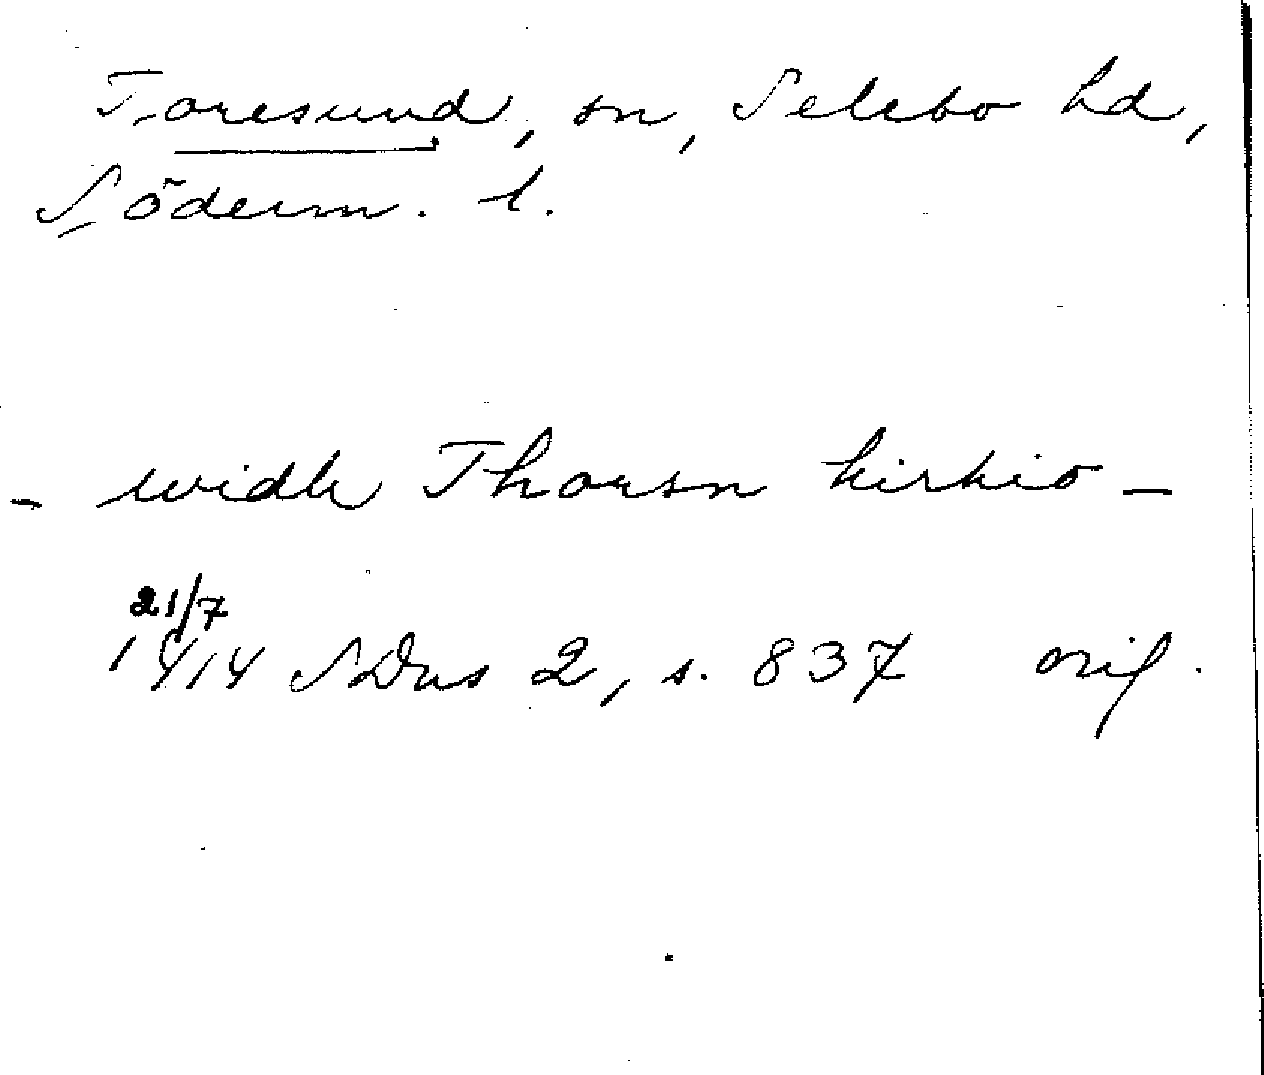 Toresund, sn, Selebo hd,
Söderm. l.
- widh Thorsn kirkio -
21/7
1414 SDns 2, s. 837 orig.